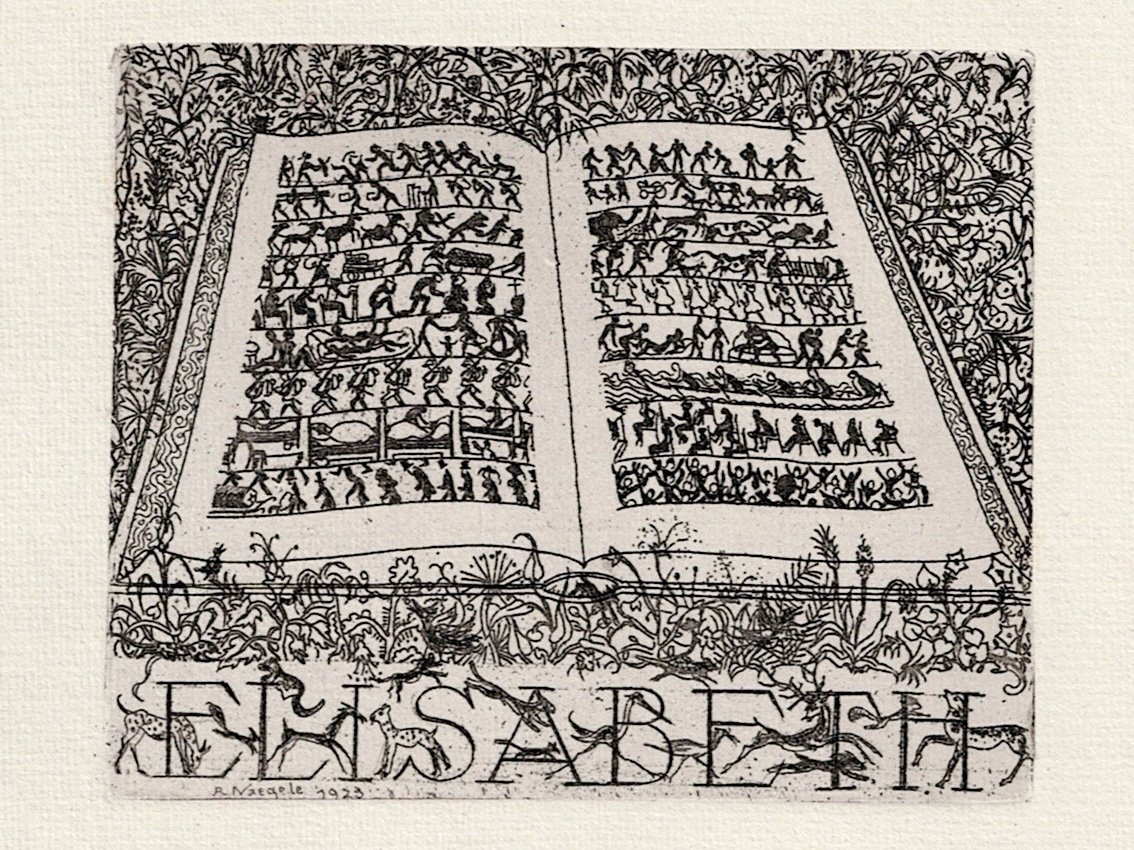 ELISABETH
R Naegele 1923